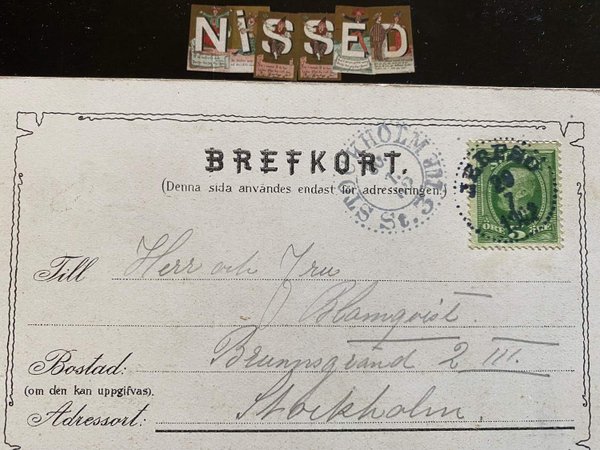 NiSSED
BREFKORT.
(Denna sida användes endast för adresseringen.)
STOCKHOLM
St. 3
29
7
1902
5 ÖRE
Till Herr och Fru
Blomqvist.
Bostad: Brunnsgränd 2 III.
(om den kan uppgifvas).
Adressort: Stockholm.